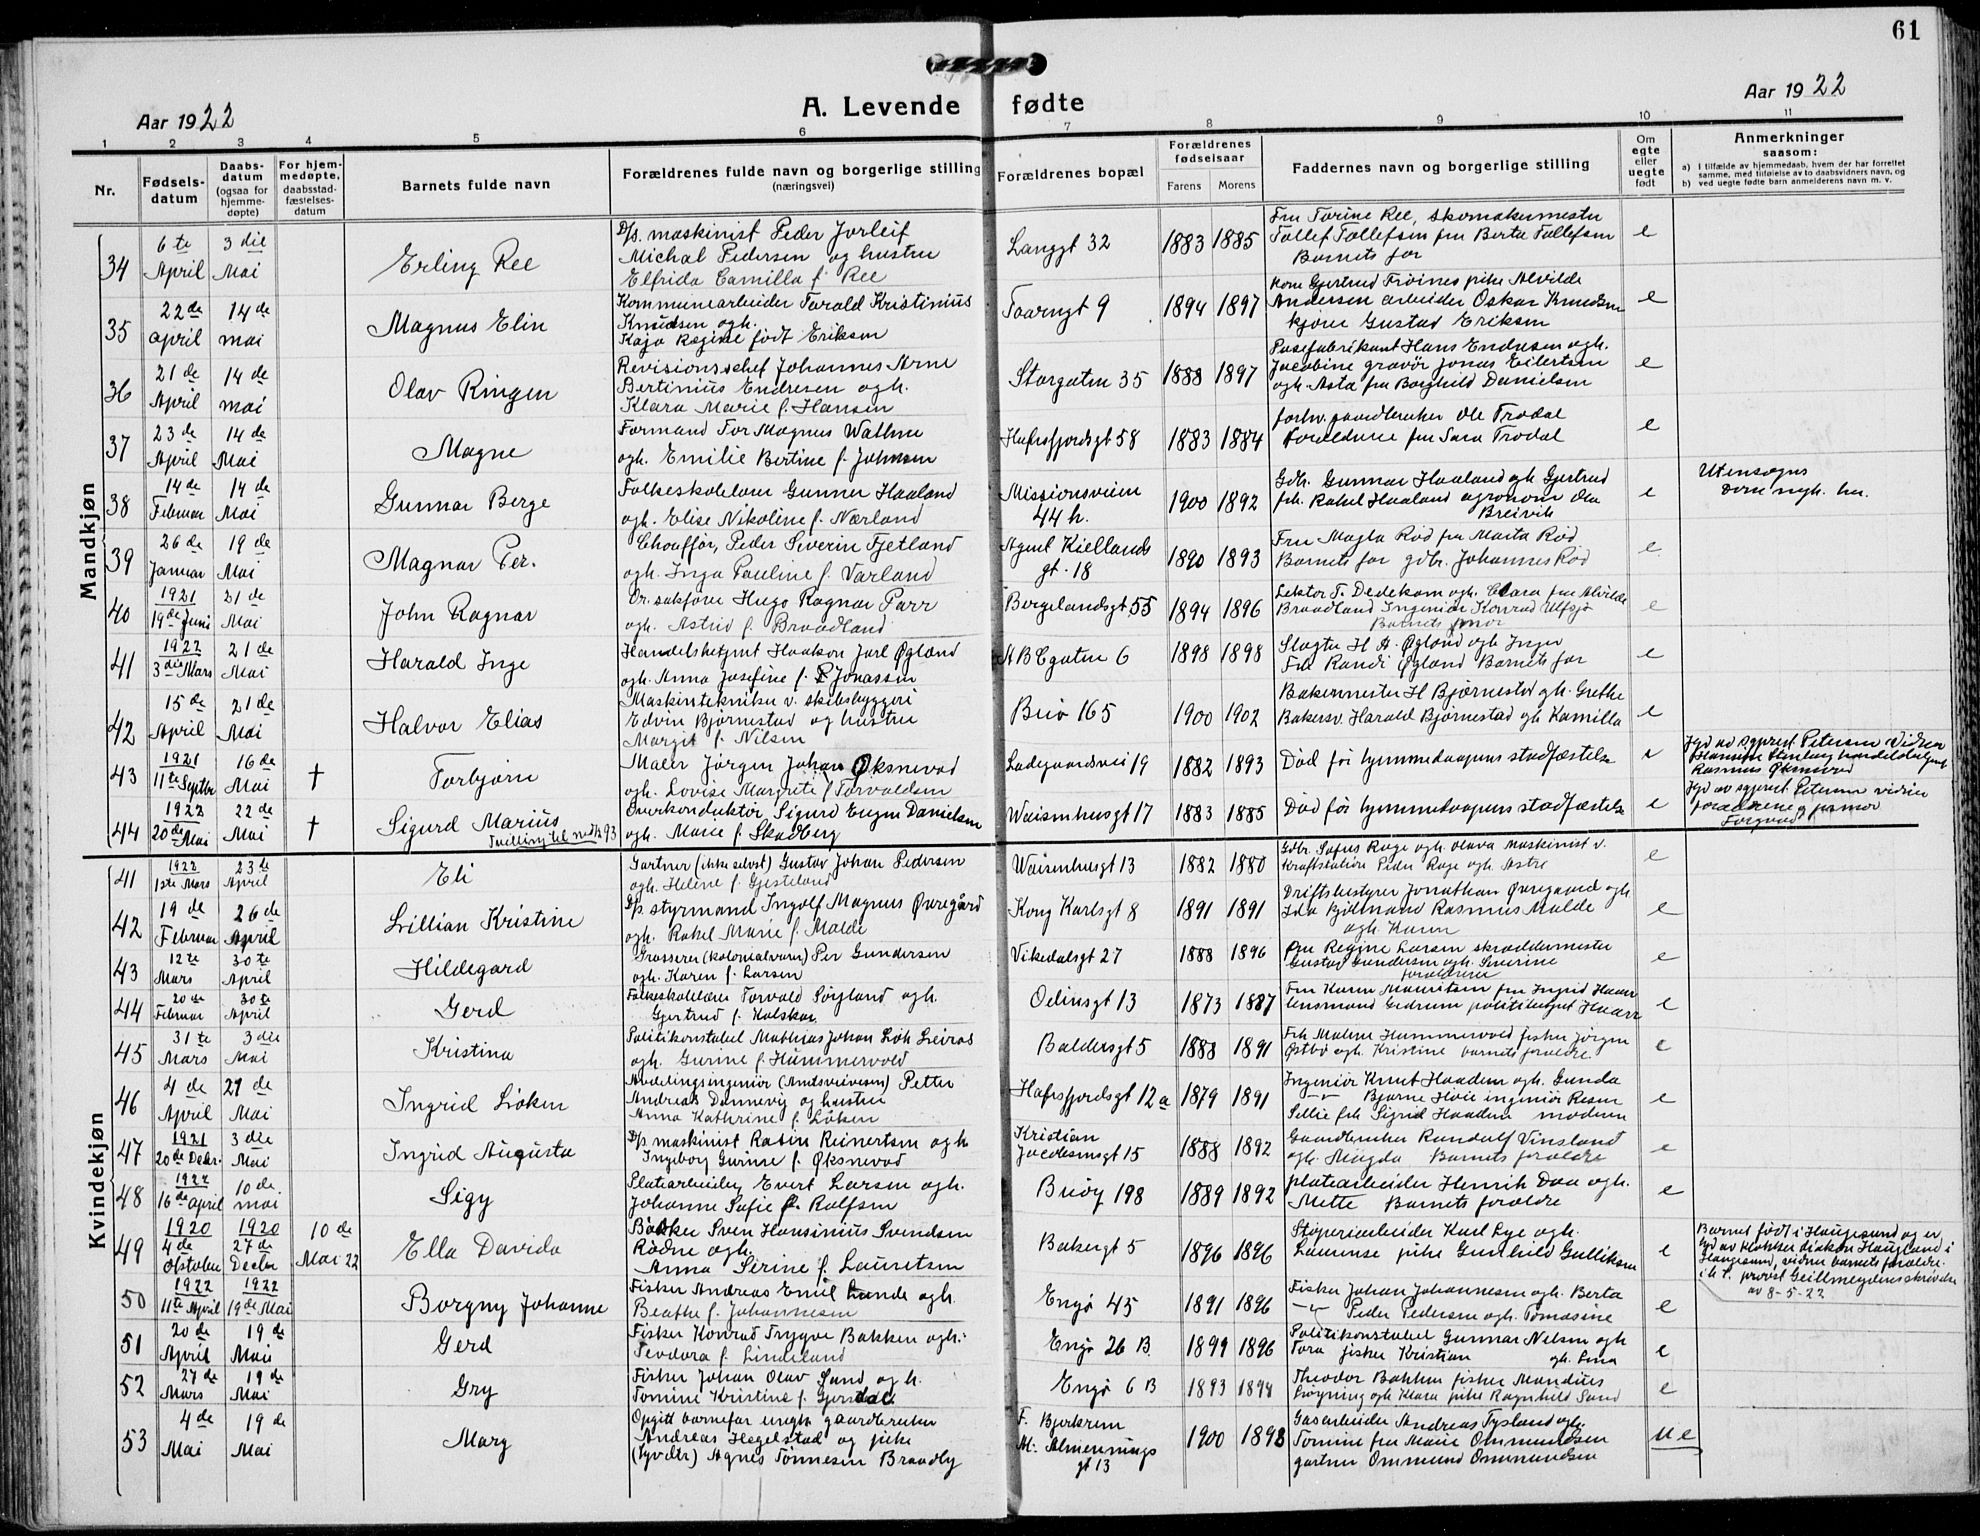 61
Aar 1922
A. Levende fødte
Aar 1922
1 2 3 4 5 6 7 8 9 10 11
Nr.
Fødsels-
datum
Daabs-
datum
(ogsaa for
hjemme-
døpte)
For hjem-
medøpte,
daabsstad-
fæstelses-
datum
Barnets fulde navn
Forældrenes fulde navn og borgerlige stilling
(næringsvei)
Forældrenes bopæl
Forældrenes
fødselsaar
Farens Morens
Faddernes navn og borgerlige stilling
Om
egte
eller
uegte
født
Anmerkninger
saasom:
a) I tilfælde av hjemmedaab, hvem der har forrettet
samme, med tilføielse av to daabsvidners navn, og
b) ved uegte fødte barn anmelderens navn m. v.
Mandkjøn
34
6te April
3die Mai
Erling Ree
D/s. maskinist Peder Jorleif
Michal Pedersen og hustru
Elfrida Camilla f. Ree
Langgt 32
1883 1885
Fru Torine Ree, skomakermester
Tollef Tollefsen fru Berta Tollefsen
Barnets far
e
35
22de april
14de mai
Magnus Elin
Kommunearbeider Torald Kristinius
Knudsen ogh.
Kaja Regine født Eriksen
Taarngt 9
1894 1897
Kone Gjertrud Frøines pike Alvilde
Andersen arbeider Oskar Knudsen
kjører Gustav Eriksen
e
36
21de April
14de mai
Olav Ringen
Revisionschef Johannes Arne
Bertinius Endresen ogh.
Klara Marie f. Hansen
Storgaten 35
1888 1897
Posefabrikant Hans Endresen ogh.
Jacobine gravør Jonas Eilertsen
ogh. Asta fru Borghild Danielsen
e
37
23de April
14de Mai
Magne
Formand Tor Magnus Wathne
ogh. Emilie Bertine f. Johnsen
Hafrsfjordsgt 58
1883 1884
forhv. gaardbruker Ole Trodal
Forældrene fru Sara Trodal
e
38
14de Februar
14de Mai
Gunnar Berge
Folkeskolelærer Gunnar Haaland
ogh. Elise Nikoline f. Nærland
Missionsveien
44 h.
1900 1892
Gdb. Gunnar Haaland ogh Gjertrud
frk. Rakel Haaland agronom Ola
Breivik
e
Utensogns
39
26de Januar
19de Mai
Magnar Per.
Chauffør, Peder Siverin Tjetland
ogh. Inga Pauline f. Varland
Agnet Kiellands
gt. 18
1890 1893
Fru Magla Rød fru Marta Rød
Barnets far gdbr. Johannes Rød
e
40
1921
19de Juni
21de Mai
John Ragnar
Or. sakfører Hugo Ragnar Parr
ogh. Astrid f. Braadland
Bergelandsgt 55
1894 1896
Lektor T. Dedekam ogh. Clara fru Alvilde
Braadland Ingeniør Konrad Ulfsjø
Barnets
e
41
1922
3die Mars
21de Mai
Harald Inge
Handelsbetjent Haakon Jarl Øglænd
ogh. Anna Josefine f. Jonassen
A B Egaten 6
1898 1898
Slagter H A. Øgland ogh Inger
Fru Randi Øgland Barnets far
e
42
15de April
21de Mai
Halvor Elias
Maskintekniker v. skibsbyggeri
Edvin Bjørnestad og hustru
Margit f. Nilsen
Buø 165
1900 1902
Bakermester H Bjørnestad ogh. Grethe
Bakersv. Harald Bjørnestad ogh Kamilla
e
43
1921
11te Septbr
16de Mai
†
Torbjørn
Maler Jørgen Johan Øksnevad
ogh. Lovise Margrete f. Torvaldsen
Ladegaardsvei 19
1882 1893
Død før hjemmedaapens stadfæstelse
e
Rasmus Øksnevad
44
1922
20de Mai
22de Mai
†
Sigurd Marius
Tvilling til nr
Overkonduktør Sigurd Eugen Danielsen
ogh. Marie f. Skadberg
Waisenhusgt 17
1883 1885
Død før hjemmedaapens stadfæstelse
e
Kvindekjøn
41
1922
1ste Mars
23de April
Eli
Gartner (ikke selvst) Gustav Johan Pedersen
ogh. Helene f. Gjesteland
Waisenhusgt 13
1882 1880
Gdbr. Sofus Rage ogh. Olava Maskinist v.
kraftstation Peder Rage ogh. Astri
e
42
19de Februar
26de April
Lillian Kristine
D/s styrmand Ingolf Magnus Øvregård
ogh. Rakel Marie f. Malde
Kong Karlsgt 8
1891 1891
Driftsbestyrer Jonathan Øvregaard ogh
Ida Rasmus Malde
ogh. Karen
e
43
12te Mars
30te April
Hildegard
Grosserer (kolonialvarer) Per Gundersen
ogh. Karen f. Larsen
Vikedalsgt 27
1888 1896
Fru Regine Larsen skræddermester
Gustav Gundersen ogh. Severine
forældrene
e
44
20de Februar
30te April
Gerd
Folkeskolelærer Torvald Søyland ogh.
Gjertrud f. Kolskar
Odinsgt 13
1873 1887
Fru Karen Mauritzen fru Ingrid Haarr
lensmand Gudrum politibetjent Haarr
e
45
31te Mars
3die Mai
Kristina
Politikonstabel Mathias Johan Leirvås
ogh. Gurine f. Hammervold
Baldersgt 5
1888 1891
Frk Malene Hammervold fisker Jørgen
Østbø ogh. Kristine barnets forældre.
e
46
4de April
21de Mai
Ingrid Løken
Avdelingsingeniør (Amtsveivesen) Petter
Andreas Dannevig og hustru
Anna Kathrine f. Løken
Hafrsfjordsgt 12a
1879 1891
Ingeniør Knut Haaden ogh. Gunda
–"– Bjarne Høie ingeniør Rosen
Sellie frk Sigrid Haaden moderen
e
47
1921
20de Decbr.
3die Mai
Ingrid Augusta
D/s maskinist Rasin Reinertsen ogh
Ingeborg Gurine f. Øksnevad
Kristian
Jacobsensgt 15
1888 1892
Gaardbruker Randulf Vinsland
ogh. Magda Barnets forældre
e
48
1922
16de april
10de mai
Sigy
Platearbeider Evert Larsen ogh.
Johanne Sofie f. Rolfsen
Buøy 198
1889 1892
Platearbeider Henrik Daa ogh.
Mette Barnets forældre
e
49
1920
4de Oktober
1920
27de Decbr
10de Mai 22
Ella Davida
Bøkker Sven Hansinius Svendsen
Rødne ogh.
Anna Serine f. Lauretsen
Bakergt 5
1896 1896
Støperiarbeider Karl Lye ogh.
Laurense pike Gunhild Gulliksen
e
Barnet født i Haugesund og er
hjd av klokker diakon Haugland i
Haugesund, vidner barnets forældre.
i h. t. provst Geillmeydens skrivelse
av 8-5-22
50
1922
11te April
1922
19de Mai
Borgny Johanne
Fisker Andreas Emil Lunde ogh.
Beathe f. Johannesen
Engø 45
1891 1896
Fisker Johan Johannesen ogh. Berta
–"– Peder Pedersen ogh. Tomasine
e
51
20de April
19de Mai
Gerd
Fisker Konrad Trygve Bakken ogh.
Teodora f. Lindeland
Engø 26 B
1899 1896
Politikonstabel Gunnar Nelsen ogh
Tora fisker Kristian ogh. Lina
e
52
27de Mars
19de Mai
Gry
Fisker Johan Olav Sund ogh.
Tomine Kristine f. Gjersdal
Engø 6 B
1893 1894
Theodor Bakken fisker Mandius
Løyning ogh Klara pike Ragnhild Sund
e
53
4de Mai
19de Mai
Marg
Opgit barnefar ungk. gaardbruker
Andreas Hegelstad og pike
(syvdtr) Agnes Tønnesen Braadly
F. Bjerkrem
M. Almennings
gt 13
1900 1898
Gasarbeider Andreas Tysland ogh.
Tomine fru Marie Ommundsen
gartner Ommund Ommundsen
u e